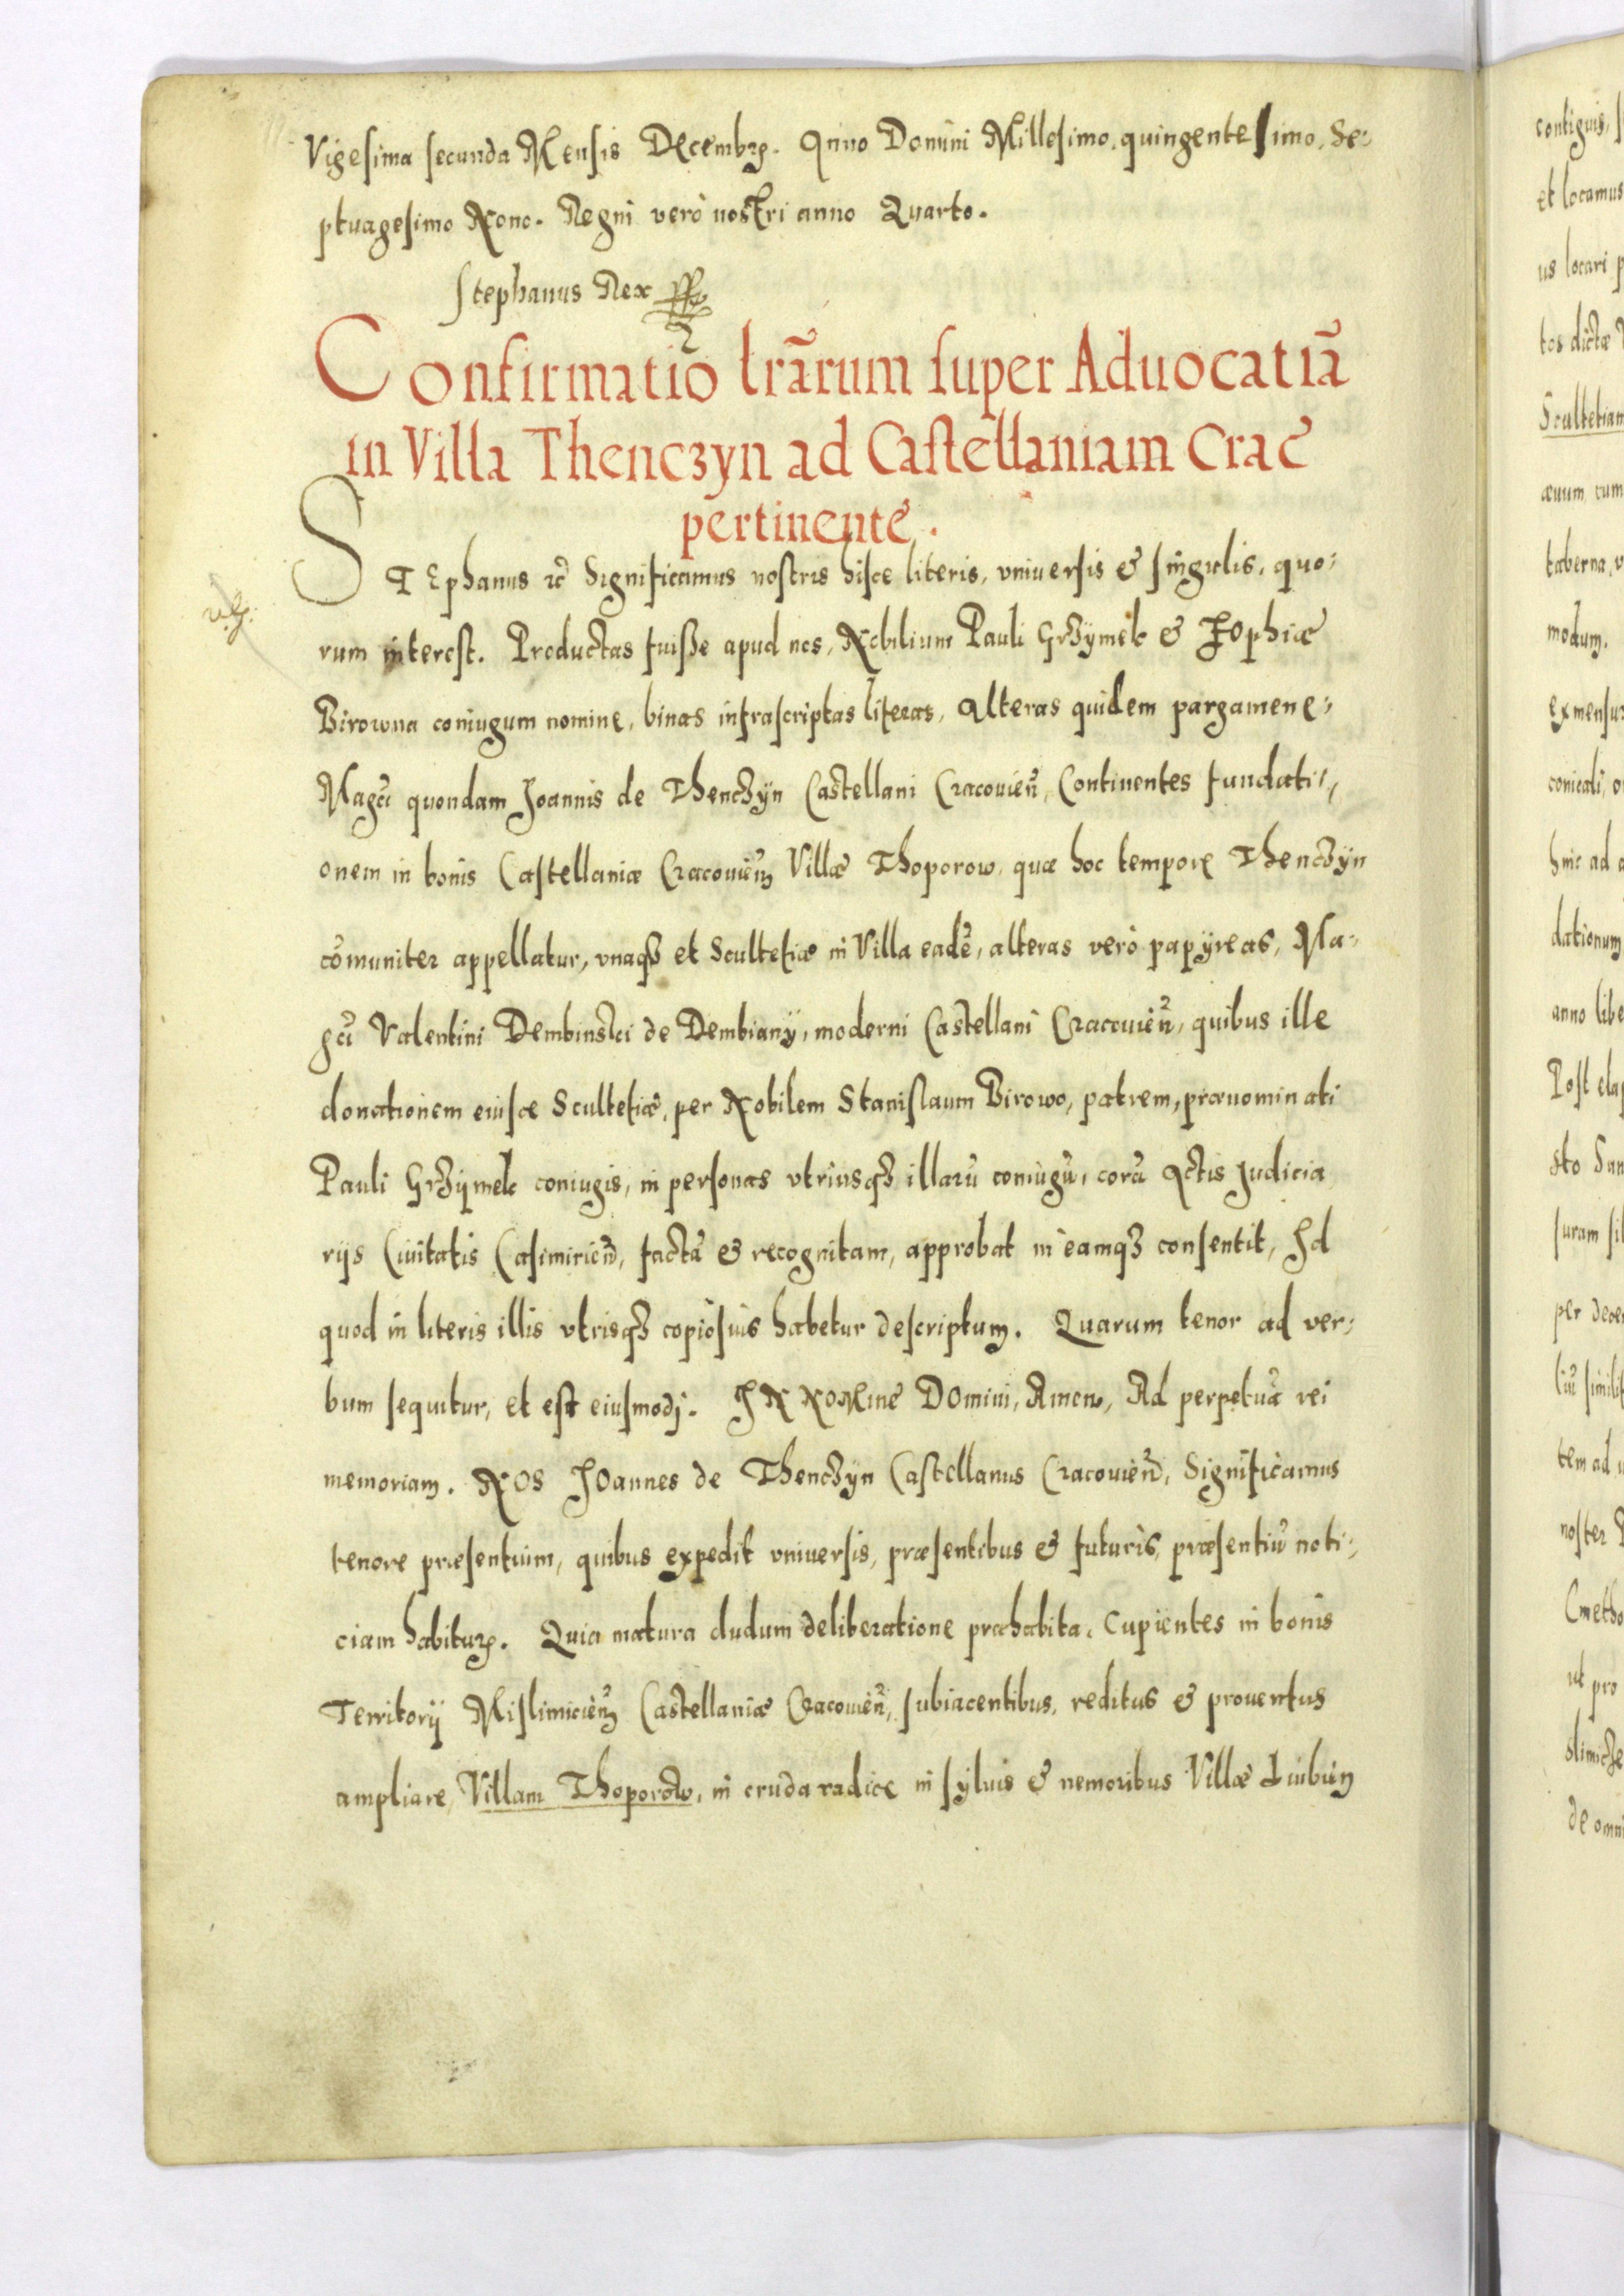 Vigesima secunda Mensis Decembr. Anno Domini Millesimo, quingentesimo, Se-
ptuagesimo Nono. Regni verò nostri anno Quarto.
Stephanus Rex
Confirmatio lrãrum super Aduocatiã
in Villa Thenczyn ad Castellaniam Crac̃
pertinente.
STEphanus etc̃ Significamus nostris hisce literis, vniuersis & singulis, quo-
rum interest. Productas fuisse apud nos, Nobilium Pauli Grzymek & Zophiæ
Birowna coniugum nomine, binas infrascriptas literas, Alteras quidem pargamene-
Magci quondam Joannis de Thenczÿn Castellani Cracouień, Continentes fundati-
onem in bonis Castellaniæ Cracouień Villæ Thoporow, quæ hoc tempore Thenczÿn
cõmuniter appellatur, vnaqz et Scultetiæ in Villa eadẽ, alteras verò papÿreas, Ma-
gci Valentini Dembinski de Dembianÿ, moderni Castellani Cracouień, quibus ille
donationem eiusce Scultetiæ, per Nobilem Stanislaum Birowo, patrem, prænominati
Pauli Grzÿmek coniugis, in personas vtriusqz illarũ coniugũ, corã Actis Judicia
rijs Ciuitatis Casimirień, factã & recognitam, approbat in eamqz consentit, Id
quod in literis illis vtrisqz copiosius habetur descriptum. Quarum tenor ad ver-
bum sequitur, et est eiusmodj. IN NOMine DOmini, Amen, Ad perpetuã rei
memoriam. NOS JOannes de Thenczÿn Castellanus Cracouień, Significamus
tenore præsentium, quibus expedit vniuersis, præsentibus & futuris, præsentiũ noti-
ciam habitur. Quia matura dudum deliberatione præhabita, Cupientes in bonis
Territorij Mislimicień Castellaniæ Cracouień, subiacentibus, reditus & prouentus
ampliare, Villam Thoporow, in cruda radice in syluis & nemoribus Villæ